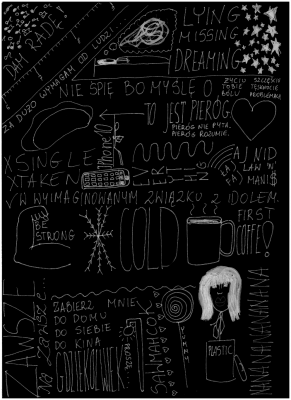 DAM RADĘ!
LYING
MISSING
DREAMING
ZA DUŻO WYMAGAM OD LUDZI
NIE ŚPIĘ BO MYŚLĘ O
ŻYCIU SZCZĘŚCIU
TOBIE TĘSKNOCIE
BÓLU PROBLEMACH
TO JEST PIERÓG
PIERÓG NIE PYTA,
PIERÓG ROZUMIE.
iPhone 10
X SINGLE
X TAKEN
EVERYTHING
AJ NID
LAW 'N'
MANI$
√ W WYIMAGINOWANYM ZWIĄZKU Z IDOLEM.
BE
STRONG
COLD
FIRST
COFFEE!
ZAWSZE
ZABIERZ MNIE
DO DOMU
DO SIEBIE
DO KINA
GDZIEKOLWIEK
PROSZĘ
PLASTIC
NANANANANANANANA